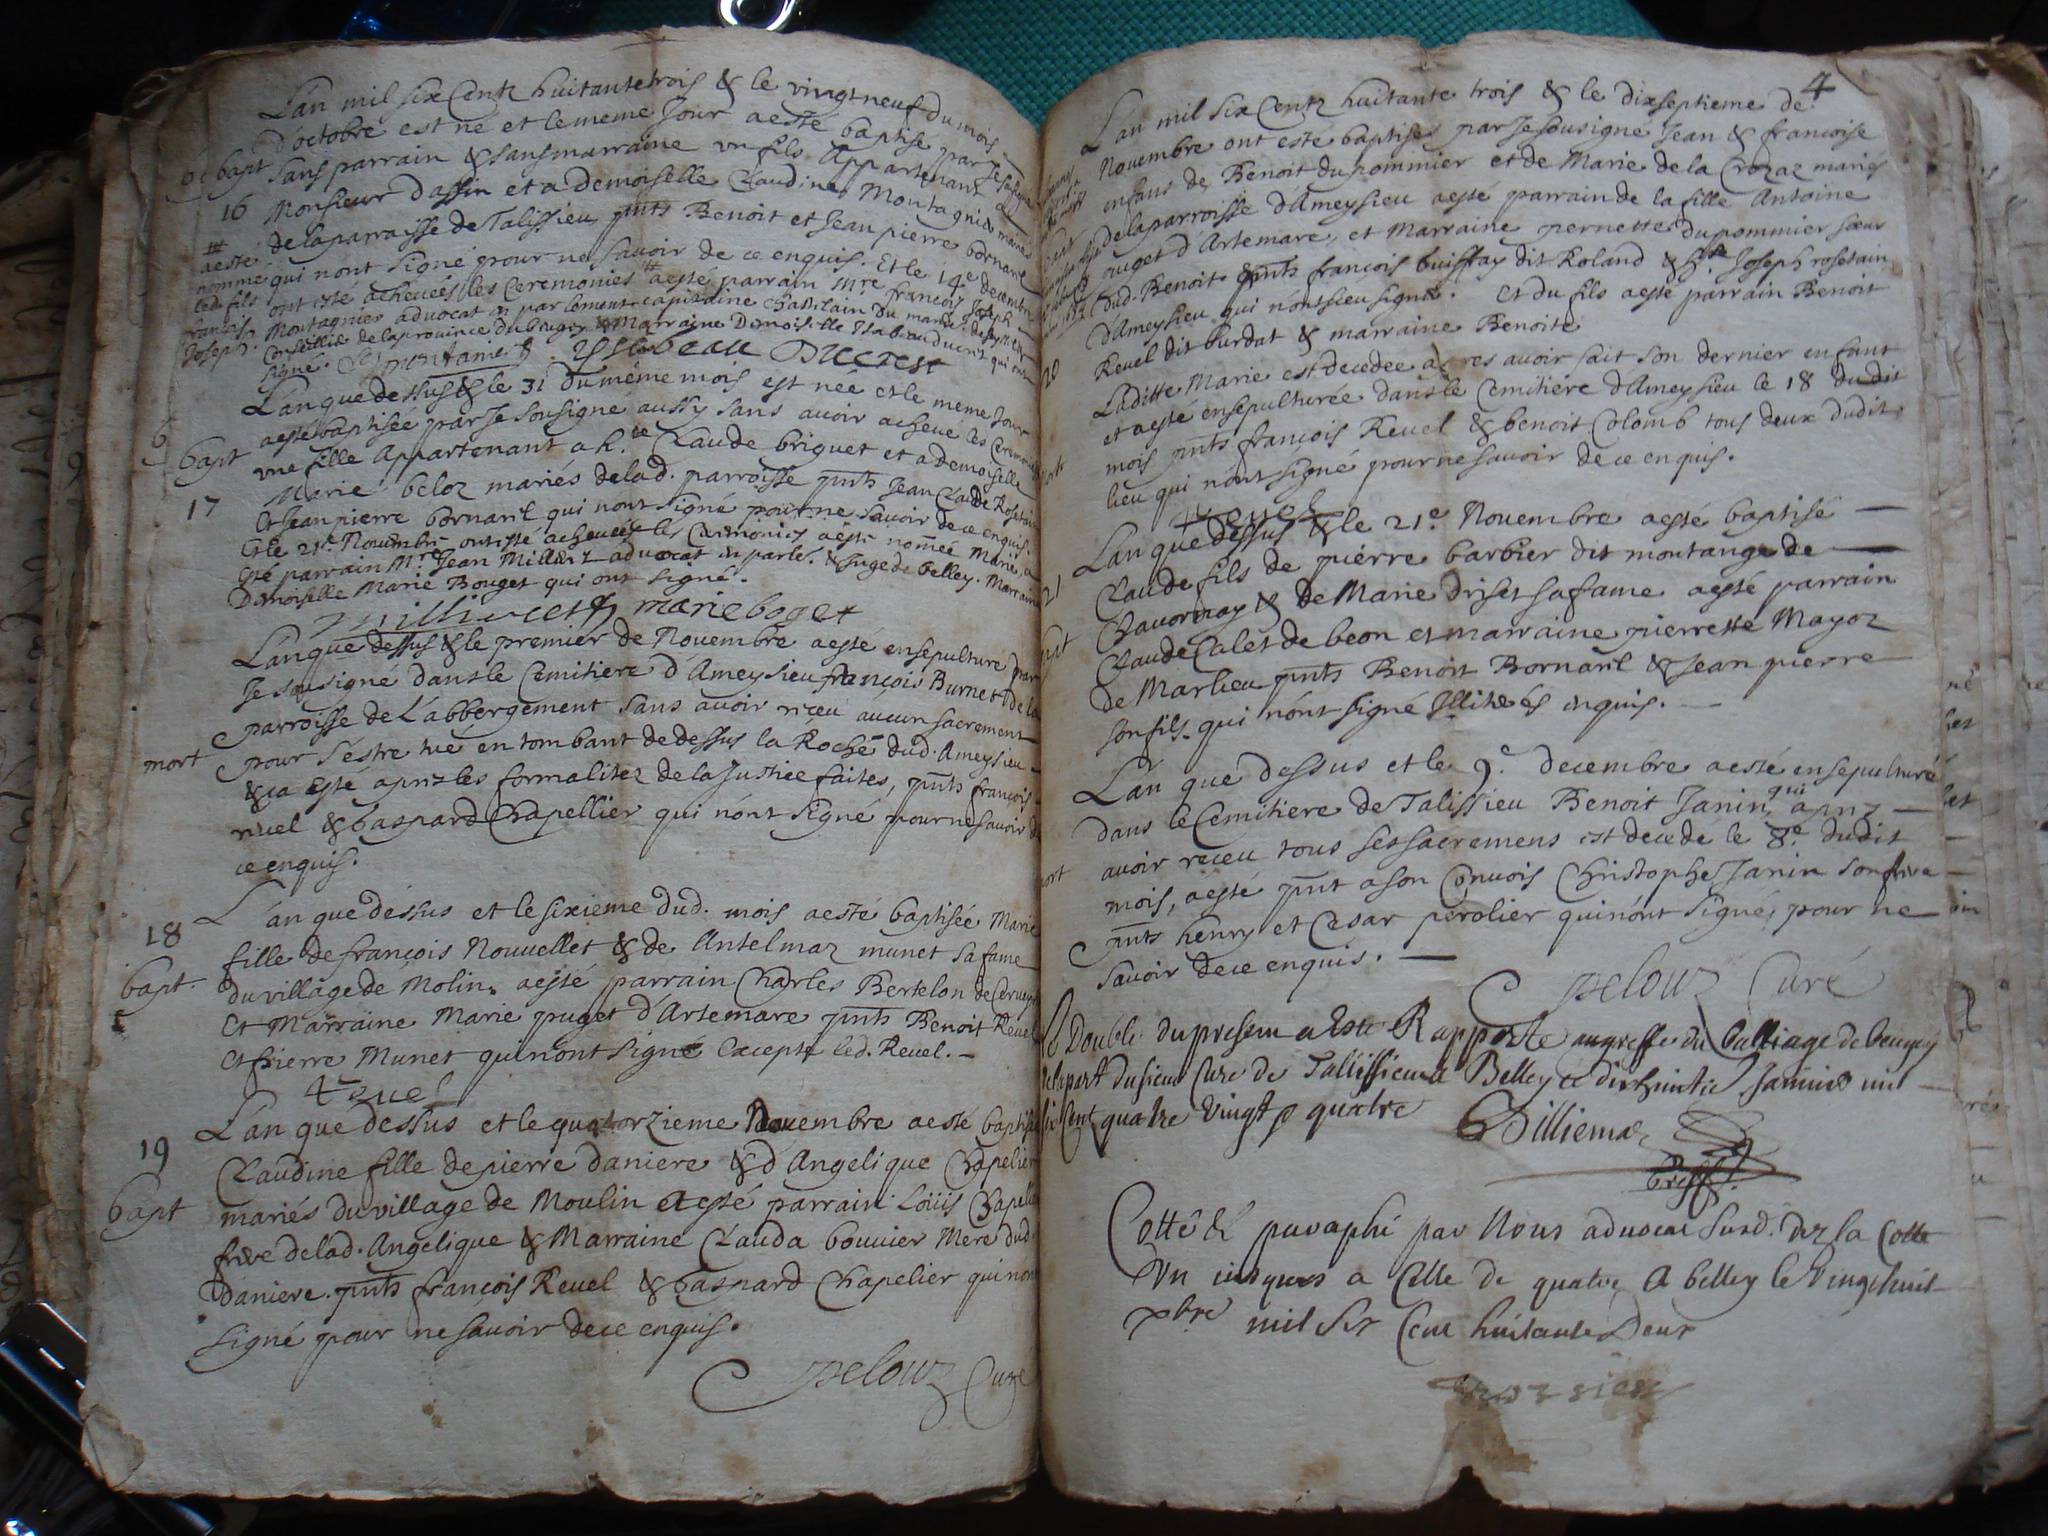 L'an mil six Centz huitante trois & le vingt neuf du mois
d'octobre est né et le meme Jour a esté baptisé par Je sousigné
bapt sans parrain & sans marraine un fils Appartenant a
16 Monsieur dassin et a demoiselle Claudine Montagnier mariés
de la parroisse de Talissieu pnts Benoit et Jean pierre bornard
qui nont signé pour ne savoir de ce enquis. Et le 14e decembre
ont esté achevées les Ceremonies a esté parrain Mre françois Joseph
Montagnier advocat en parlement capitaine chastelain du
Conseillier de la province du bugey & Marraine Demoiselle Isabeau ducrest qui ont
signé.
a esté
nommé
led. fils
françois
Joseph.
Yssabeau Ducrest
L'an que dessus & le 31 du même mois est née et le meme Jour
a esté baptisée par Je sousigné aussy sans avoir achevé les Ceremonies
bapt une fille Appartenant a Claude briguet et a demoiselle
Marie beloz mariés de lad. parroisse pnts Jean Claude Rosetain
17 Et Jean pierre bornard qui nont signé pour ne savoir de ce enquis.
Et le 21e Novembre ont esté achevées les Ceremonies a esté nommée Marie, a
esté parrain Mre Jean Millieret advocat en parlé. & Juge de belley. Marraine
Demoiselle Marie Bouget qui ont signé.
Millieret marie boget
L'an que dessus & le premier de Novembre a esté ensepulturé par
Je sousigné dans le Cemitiere d'Ameysieu françois Burnet de la
parroisse de L'abbergement sans avoir receu aucun sacrement
mort pour s'estre tué en tombant de dessus la Roche dud. Ameysieu
& a esté aprez les formalitez de la Justice faites, pnts françois
revel & gaspard Chapellier qui nónt signé pour ne savoir de
ce enquis.
18 L'an que dessus et le sixieme dud. mois a esté baptisée Marie
fille de françois Nouvellet & de Antelmaz munet sa fame
bapt. du village de Molin. a esté parrain Charles Bertelon de
Et Marraine Marie puget d'Artemare pnts Benoit Revel
Et Pierre Munet qui nont signé Excepté led. Revel.
Revel
L'an que dessus et le quatorzieme Novembre a esté baptisée
19 Claudine fille de pierre daniere & d'Angelique Chapelier
bapt mariés du village de Moulin a esté parrain Loüis Chapelier
frere de lad. Angelique & Marraine Clauda bouvier Mere dud.
daniere. pnts françois Revel & gaspard Chapelier qui nont
signé pour ne savoir de ce enquis.
Pelouz Curé
4
L'an mil six Centz huitante trois & le dixseptieme de
Novembre ont esté baptises par Je sousigné Jean & francoise
enfans de Benoit du pommier et de Marie de la Crozaz mariés
de la parroisse d'Ameysieu a esté parrain de la fille Antoine
puget d'Artemare, et Marraine pernette du pommier sœur
dud. Benoit pnts françois buiffay dit Roland & Joseph rosetain
d'Ameysieu qui nont sceu signer. Et du fils a esté parrain Benoit
Revel dit burdat & marraine Benoite
20
Laditte Marie est decedée apres avoir fait son dernier enfant
et a esté ensepulturée dans le Cemitiere d'Ameysieu le 18 dudit
mois pnts françois Revel & benoit Colomb tous deux dudit
lieu qui nónt signé pour ne savoir de ce enquis.
Revel
L'an que dessus & le 21e Novembre a esté baptisé
Claude fils de pierre barbier dit montange de
21 Chavornay & de Marie driset sa fame a esté parrain
Claude Calet de beon et marraine pierrette Mayoz
de Marlieu pnts Benoit Bornard & Jean pierre
son fils qui nónt signé Illiterés enquis.
L'an que dessus et le 9e decembre a esté ensepulturé
dans le Cemitiere de Talissieu Benoit Janin, qui aprez
avoir receu tous ses sacremens est decede le 8e dudit
mois, a esté pnt a son Convois Christophe Janin son frere
pnts henry et Cesar perolier qui nónt signé, pour ne
savoir de ce enquis.
Pelouz Curé
Le Double du present a Esté Rapporté au greffe du balliage de beugey
de la part du sieur Curé de Tallissieu a Belley ce dixhuitie Janvier mil
six Cent quatre Vingt & quatre Billiemaz
greff.
Cotté & paraphé par Nous advocat susd. dez la Cotte
Un jusques a Celle de quatre A belley le Vingt huit
xbre mil six Cent huitante Deux